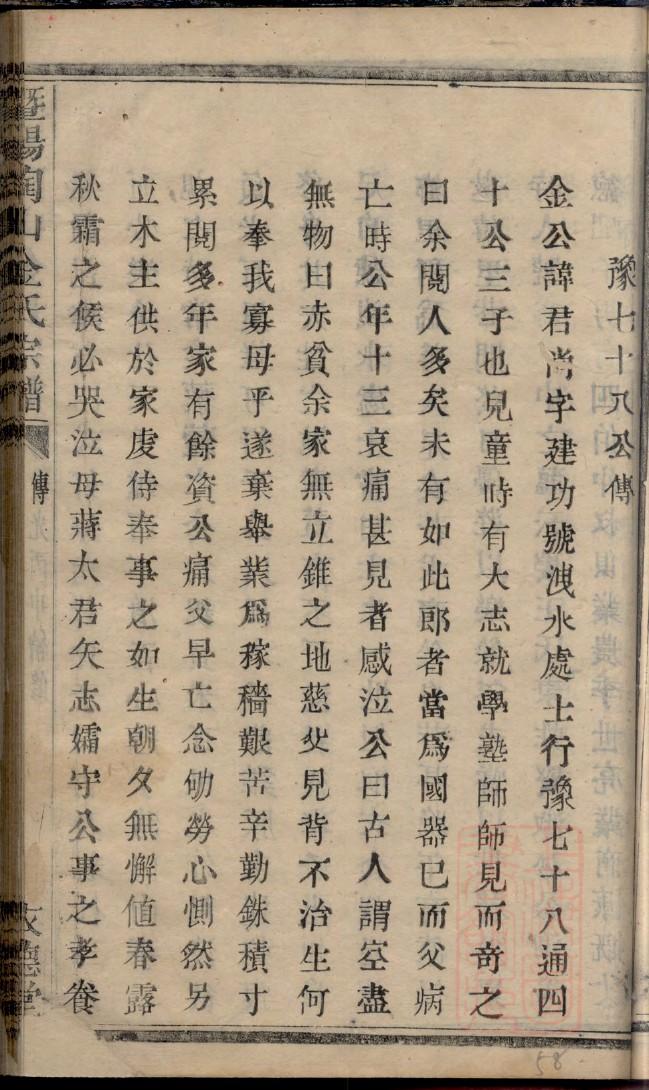 豫七十八公傳
金公諱君尚字建功號洩水處士行豫七十八通四
十公三子也兒童時有大志就學塾師師見而奇之
曰余閱人多矣未有如此郎者當爲國器已而父病
亡時公年十三哀痛甚見者感泣公曰古人謂空盡
無物曰赤貧余家無立錐之地慈父見背不治生何
以奉我寡母乎遂棄舉業爲稼穡艱苦辛勤銖積寸
累閱多年家有餘資公痛父早亡念劬勞心惻然另
立木主供於家虔侍奉事之如生朝夕無懈値春露
秋霜之候必哭泣母蔣太君矢志孀守公事之孝養
暨陽陶山金氏宗譜
傳
文德堂
58